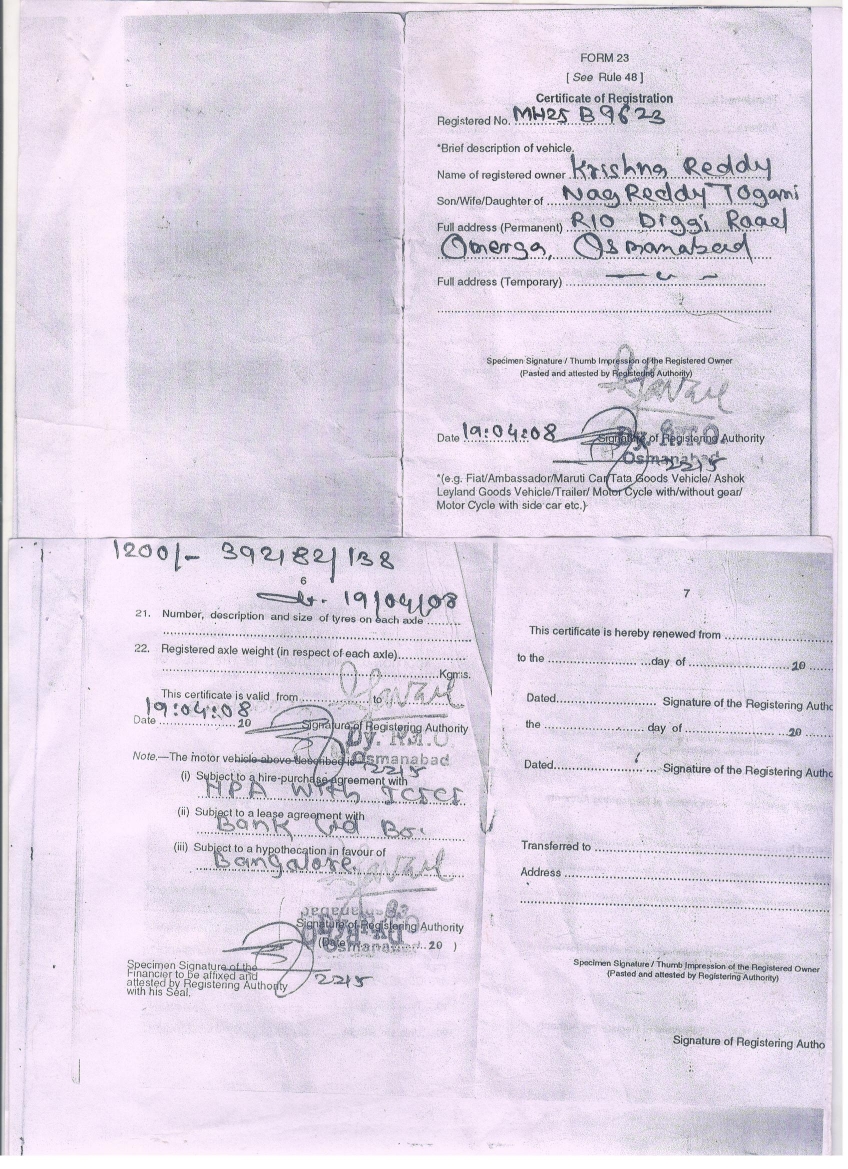 FORM 23
[ See Rule 48 ]
Certificate of Registration
Registered No. MH25 B 9623
*Brief description of vehicle.
Name of registered owner Krishna Reddy
Son/Wife/Daughter of Nag Reddy Togami
Full address (Permanent) R/O Diggi Road
Omerga, Osmanabad
Full address (Temporary)
Specimen Signature / Thumb Impression of the Registered Owner
(Pasted and attested by Registering Authority)
Date 19:04:08 Signature of Registering Authority
Dy. R.T.O
Osmanabad
2215
*(e.g. Fiat/Ambassador/Maruti Car/Tata Goods Vehicle/ Ashok
Leyland Goods Vehicle/Trailer/ Motor Cycle with/without gear/
Motor Cycle with side car etc.)
1200/- 392182/138
6
19/04/08
21. Number, description and size of tyres on each axle
22. Registered axle weight (in respect of each axle)
Kgms.
This certificate is valid from to
19:04:08
Date 20 Signature of Registering Authority
Dy. R.T.O.
Osmanabad
2215
Note.—The motor vehicle above described is
(i) Subject to a hire-purchase agreement with
HPA With ICICI
(ii) Subject to a lease agreement with
Bank Ltd
(iii) Subject to a hypothecation in favour of
Bangalore
Signature of Registering Authority
(Date 20 )
Osmanabad
2215
Specimen Signature of the
Financier to be affixed and
attested by Registering Authority
with his Seal.
7
This certificate is hereby renewed from
to the day of 20
Dated Signature of the Registering Autho
the day of 20
Dated Signature of the Registering Autho
Transferred to
Address
Specimen Signature / Thumb Impression of the Registered Owner
(Pasted and attested by Registering Authority)
Signature of Registering Autho